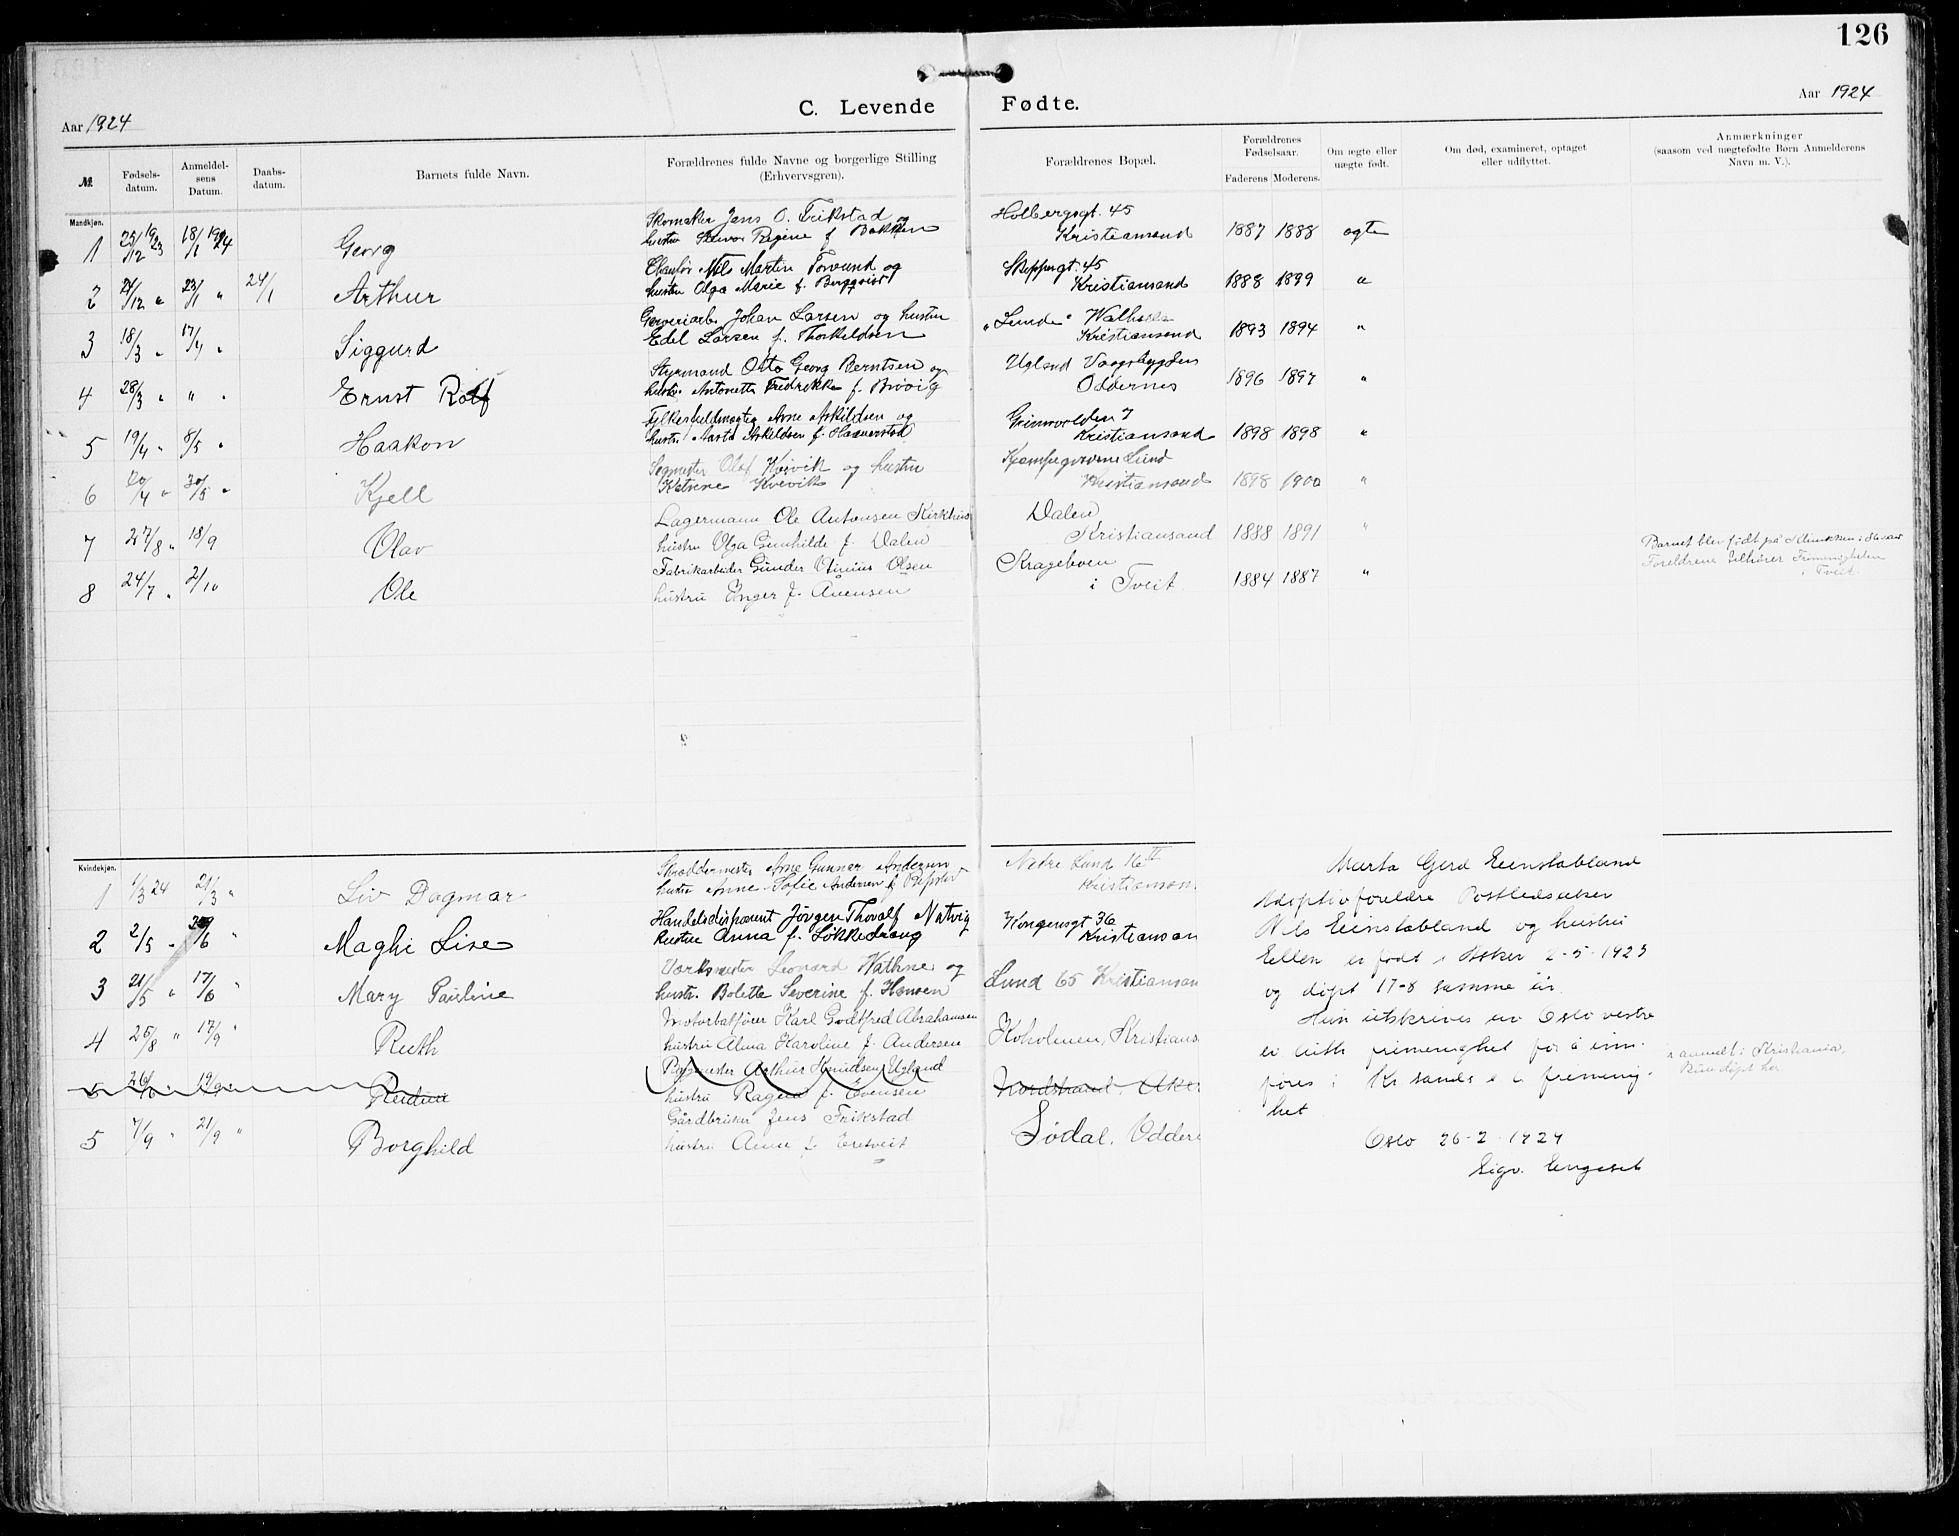 126
C. Levende Fødte.
Aar 1924
Aar 1924
№. Fødsels-datum. Anmeldel-sens Datum. Daabs-datum. Barnets fulde Navn. Forældrenes fulde Navne og borgerlige Stilling (Erhvervsgren). Forældrenes Bopæl. Forældrenes Fødselsaar. Faderens Moderens. Om ægte eller uægte født. Om død, examineret, optaget eller udflyttet. Anmærkninger (saasom ved uægtefødte Børn Anmelderens Navn m. V.).
Mandkjøn.
Skomaker Jens O. Frikstad og Holbergsgt. 45
1 25/12 1923 18/1 1924 Georg hustru Regine f Bakken Kristiansand 1887 1888 ægte
Chaufør Nils Martin Torsund og Skippergt. 45
2 24/12 " 23/1 " 24/1 Arthur hustru Olga Marie f. Bergqvist Kristiansand 1888 1899 "
Garveriarb. Johan Larsen og hustru "Lund" Walhalla
3 18/3 " 17/4 " Siggurd Edel Larsen f. Thorkildsen Kristiansand 1893 1894 "
Styrmand Otto Georg Berntsen og Ugland Vaagsbygden
4 28/3 " " " Ernst Rolf hustru Antonette Fredrikke f. Brøvig Oddernes 1896 1897 "
Fylkesfuldmægtig Arne Askildsen og Grimsvolden 7
5 19/4 " 8/5 " Haakon hustr. Aasta Askildsen f. Haaverstad Kristiansand 1898 1898 "
Sagmester Olaf Kvivik og hustru Kjempegravene Lund
6 20/4 " 30/5 " Kjell Katrine Kvivik Kristiansand 1898 1900 "
Lagermann Ole Antonsen Kirkhus Dalen
7 27/8 " 18/9 Olav hustru Olga Gunhilde f. Dalen Kristiansand 1888 1891 "
Fabrikarbeider Gunder Olsen Krageboen
8 24/7 " 2/10 Ole hustru Inger f. Aanensen i Tveit 1884 1887 "
Barnet blev født på
Foreldrene tilhører Frimenigheten
i Tveit.
Kvindekjøn.
Skræddermester Arne Gunnar Andersen Nedre Lund 16
1 1/3 24 21/3 " Liv Dagmar hustru Anne Sofie Andersen f. Kristiansan
Handelsdisponent Jørgen Thovalf Natvig Kongensgt 36
2 2/5 " /6 " Maghi Lise Hustru Anna f. Løkkedrang Kristiansan
Værksmester Leonard Wathne og
3 21/5 " 17/6 " Mary Pauline hustr. Bolette Severine f. Hansen Lund 65 Kristiansan
Motorbåtfører Karl Godtfred Abrahamsen
4 25/8 " 17/9 " Ruth hustru Alma Karoline f. Andersen Koholmen, Kristians
Arthur Knudsen Ugland
19/9 Reidun hustru Ragna f. Evensen Nordstrand, Aker
Gårdbruker Jens Frikstad
5 7/9 " 21/9 " Borghild hustru Anne f. Eretveit Sødal, Oddern
Marta Gerd Einstabland
Adoptivforeldre Postbetjent
Nils Einstabland og hustru
Ellen er født i Asker 2-5-1923
og døpt 17-8 samme år.
Hun utskrives av Oslo vestre
ev luth frimenighet for å inn-
føres i Kr.sands e l frimenig-
het.
Oslo 26-2-1924
Sigv. Engeset
anmeldt i Kristiania,
Kun døpt her